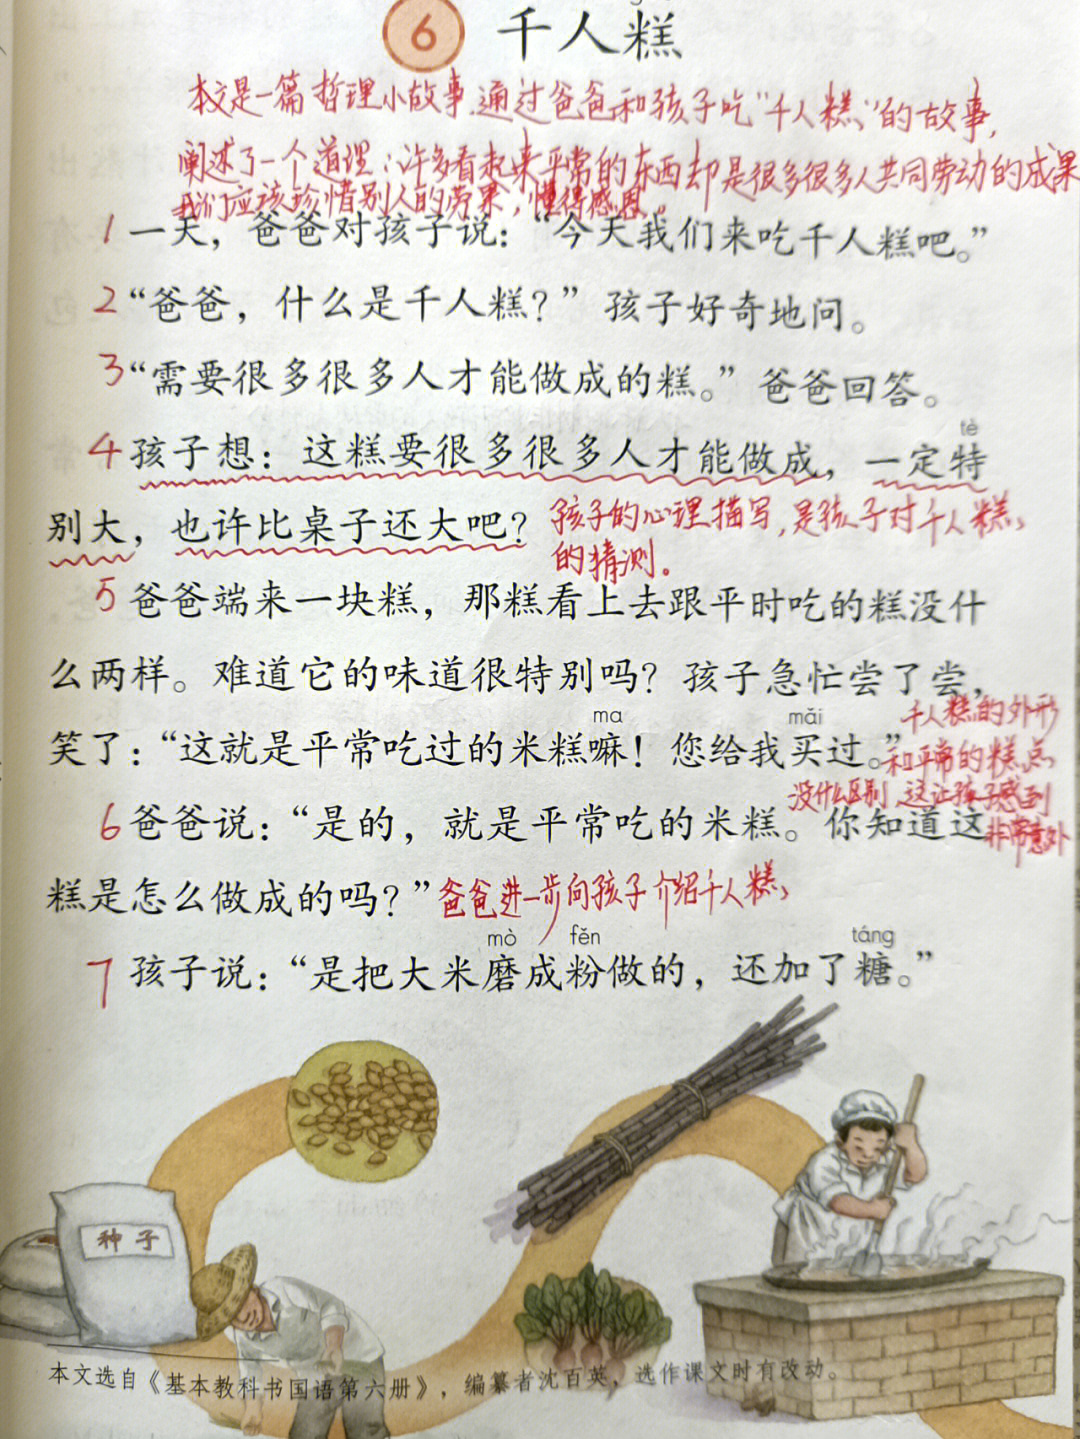 6 千人糕
本文是一篇哲理小故事.通过爸爸和孩子吃“千人糕”的故事,
阐述了一个道理:许多看起来平常的东西却是很多很多人共同劳动的成果
我们应该珍惜别人的劳果,懂得感恩。
1 一天，爸爸对孩子说：“今天我们来吃千人糕吧。”
2 “爸爸，什么是千人糕？”孩子好奇地问。
3 “需要很多很多人才能做成的糕。”爸爸回答。
tè
4 孩子想：这糕要很多很多人才能做成，一定特
别大，也许比桌子还大吧？
孩子的心理描写,是孩子对千人糕
的猜测。
5 爸爸端来一块糕，那糕看上去跟平时吃的糕没什
么两样。难道它的味道很特别吗？孩子急忙尝了尝，
ma mǎi
笑了：“这就是平常吃过的米糕嘛！您给我买过。”
千人糕的外形
和平常的糕点
没什么区别,这让孩子感到
非常意外
6 爸爸说：“是的，就是平常吃的米糕。你知道这
糕是怎么做成的吗？”
爸爸进一步向孩子介绍千人糕
mò fěn táng
7 孩子说：“是把大米磨成粉做的，还加了糖。”
种子
本文选自《基本教科书国语第六册》，编纂者沈百英，选作课文时有改动。